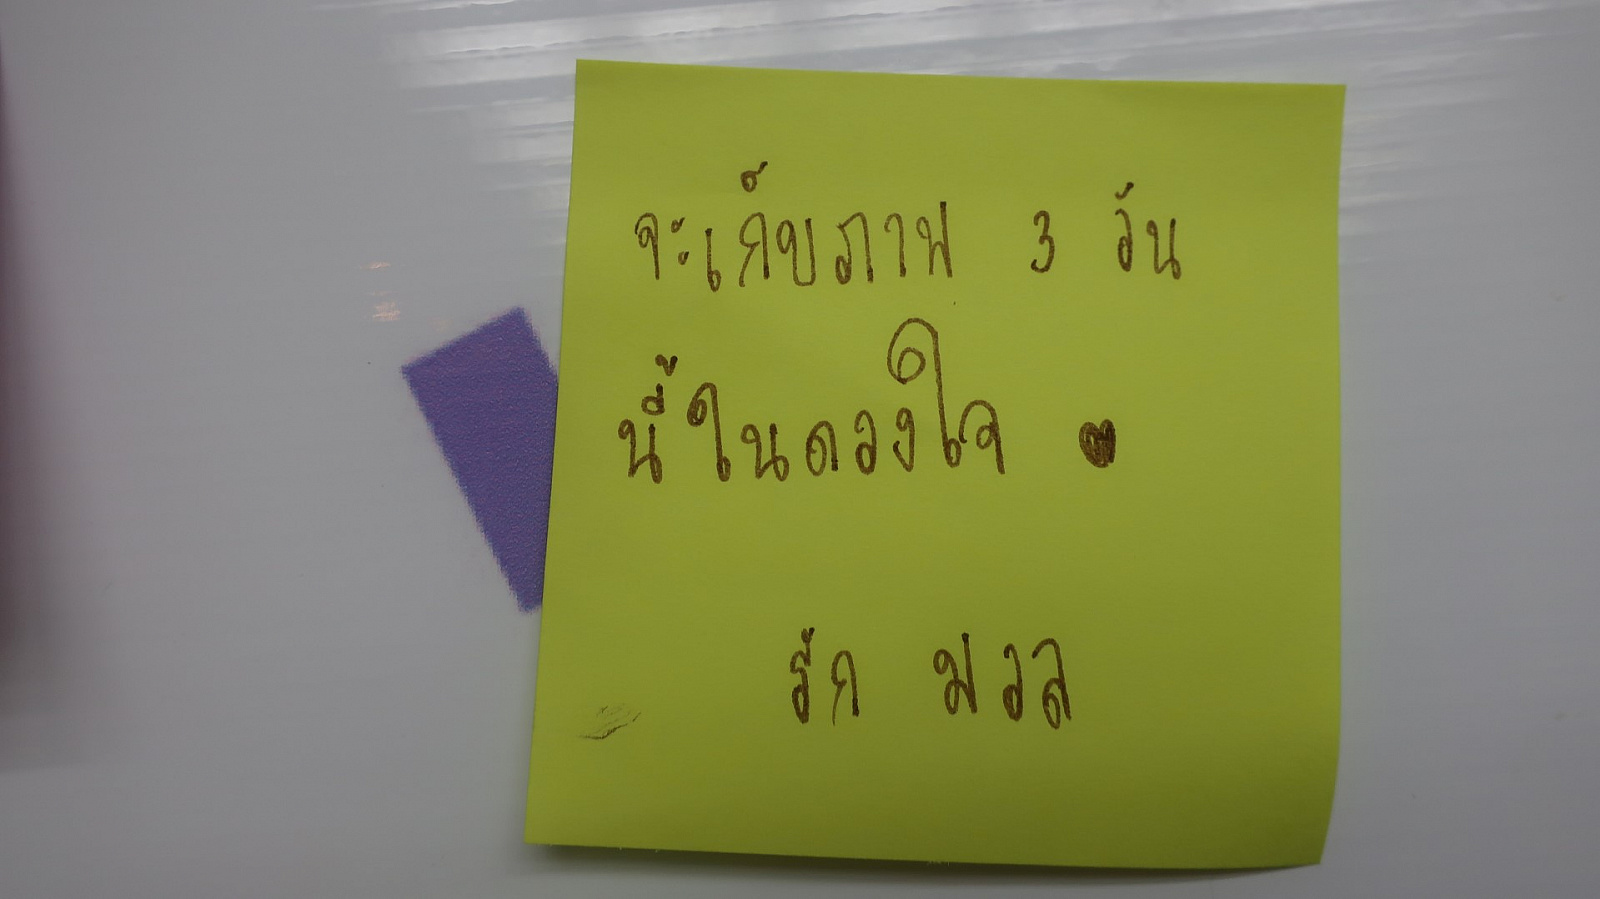 จะเก็บภาพ 3 วัน
นี้ในดวงใจ
รัก มวล